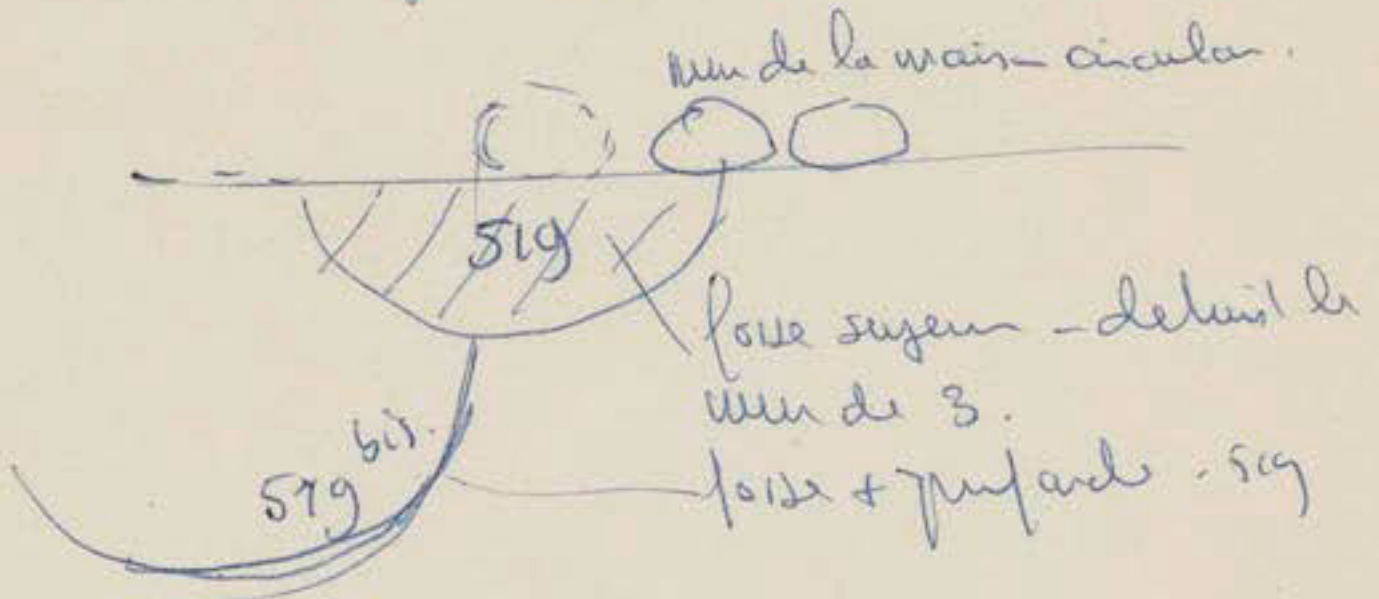 mur de la maison circulair.
519
fosse superieur - detruit le
mur de 3.
519 bis.
fosse + profonde - 519